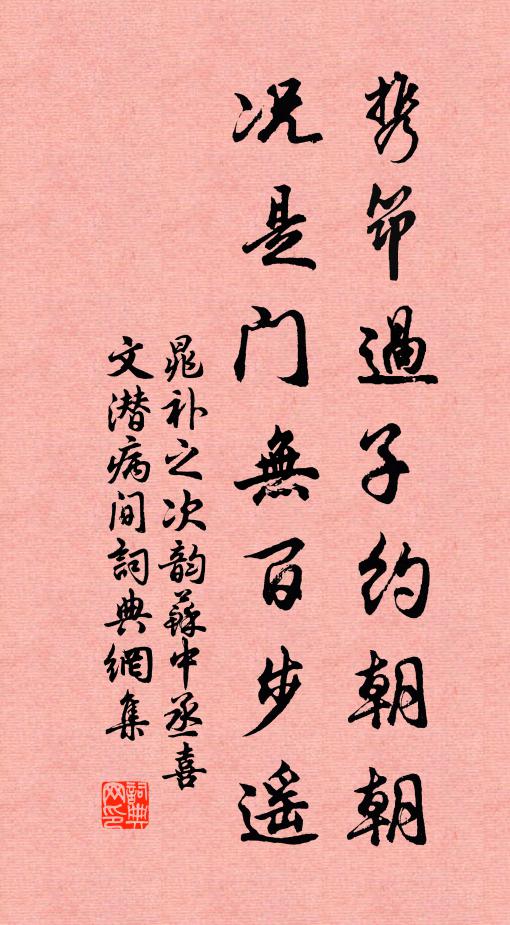 携筇過子約朝朝
况是门無百步遥
晁补之次韵蘇中丞喜
文潜病间詞典網集
詞典网印